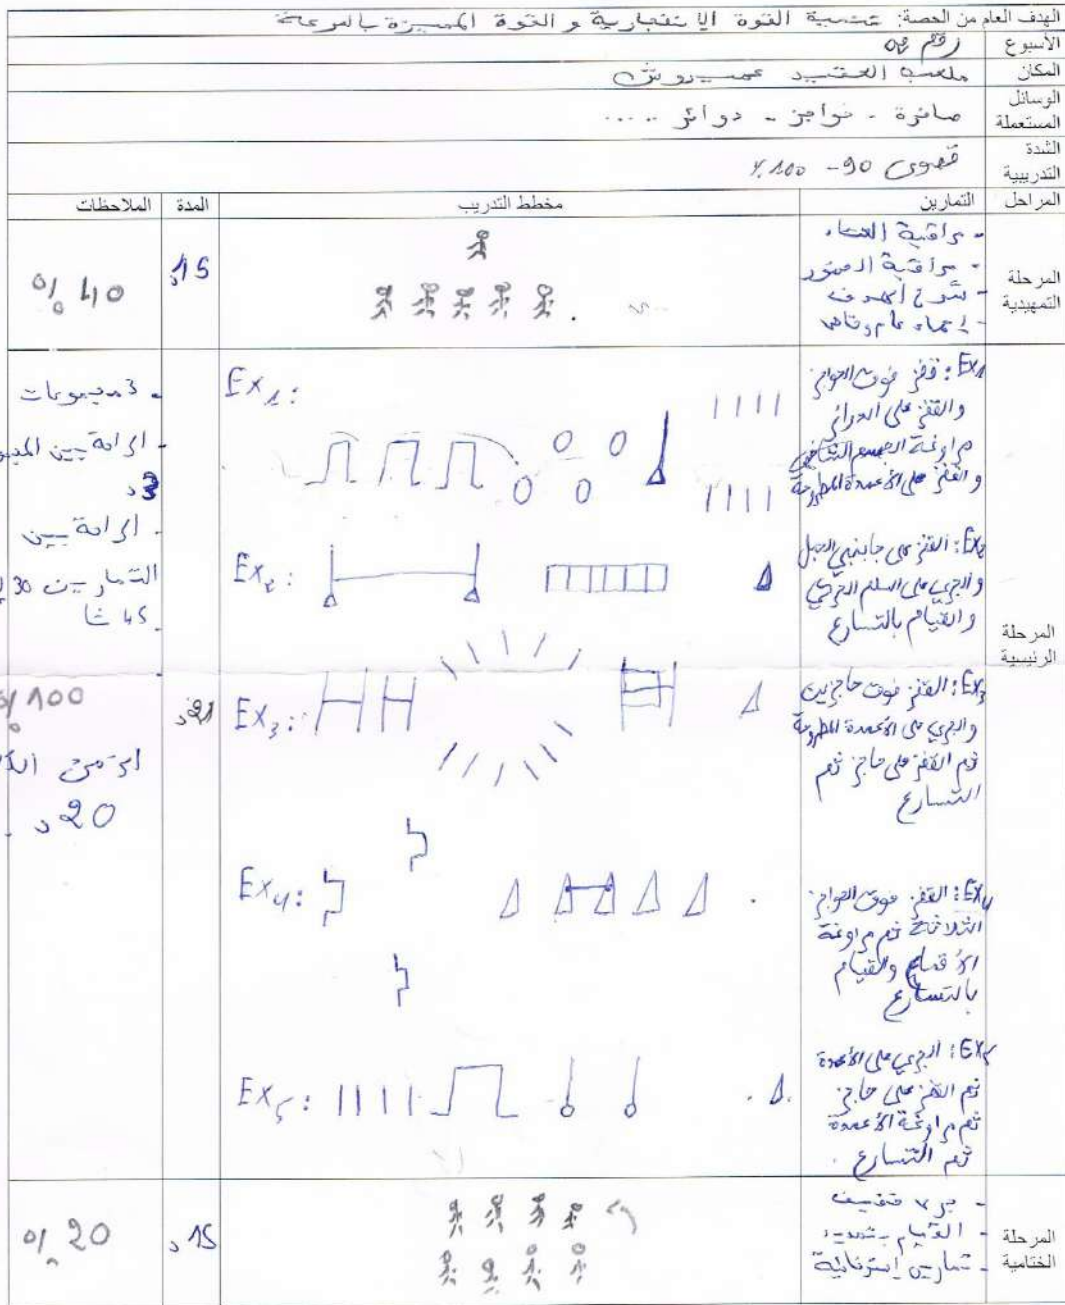 الهدف العام من الحصة: تنمية القوة الانفجارية و القوة المميزة بالسرعة
الأسبوع رقم
المكان ملعب العقيد عميروش
الوسائل المستعملة صافرة - حواجز - دوائر .....
الشدة التدريبية قصوى 90 - 100٪
المراحل التمارين مخطط التدريب المدة الملاحظات
المرحلة التمهيدية
- مراقبة
- مراقبة
- شرح الهدف
- إحماء عام وخاص
15د
40 %
المرحلة الرئيسية
Ex1: قفز فوق الحواجز
والقفز على الدوائر
مراوغة الجسم
والقفز على الأعمدة المطروحة
Ex2: القفز على جانبي الحبل
والجري على السلم الحركي
والقيام بالتسارع
Ex3: القفز فوق حاجزين
والجري على الأعمدة المطروحة
ثم القفز على حاجز ثم
التسارع
Ex4: القفز فوق الحواجز
الثلاثة ثم مراوغة
الأقماع والقيام
بالتسارع
Ex5: الجري على الأعمدة
ثم القفز على حاجز
ثم مراوغة الأعمدة
ثم التسارع .
Ex1:
Ex2:
Ex3:
Ex4:
Ex5:
21د
- 3 مجموعات
- الراحة بين
3د
- الراحة بين
التمارين 30
45 ثا
100 %
الزمن
20د
المرحلة الختامية
- جري خفيف
- القيام بتمديد
- تمارين إسترخائية
15د
20 %